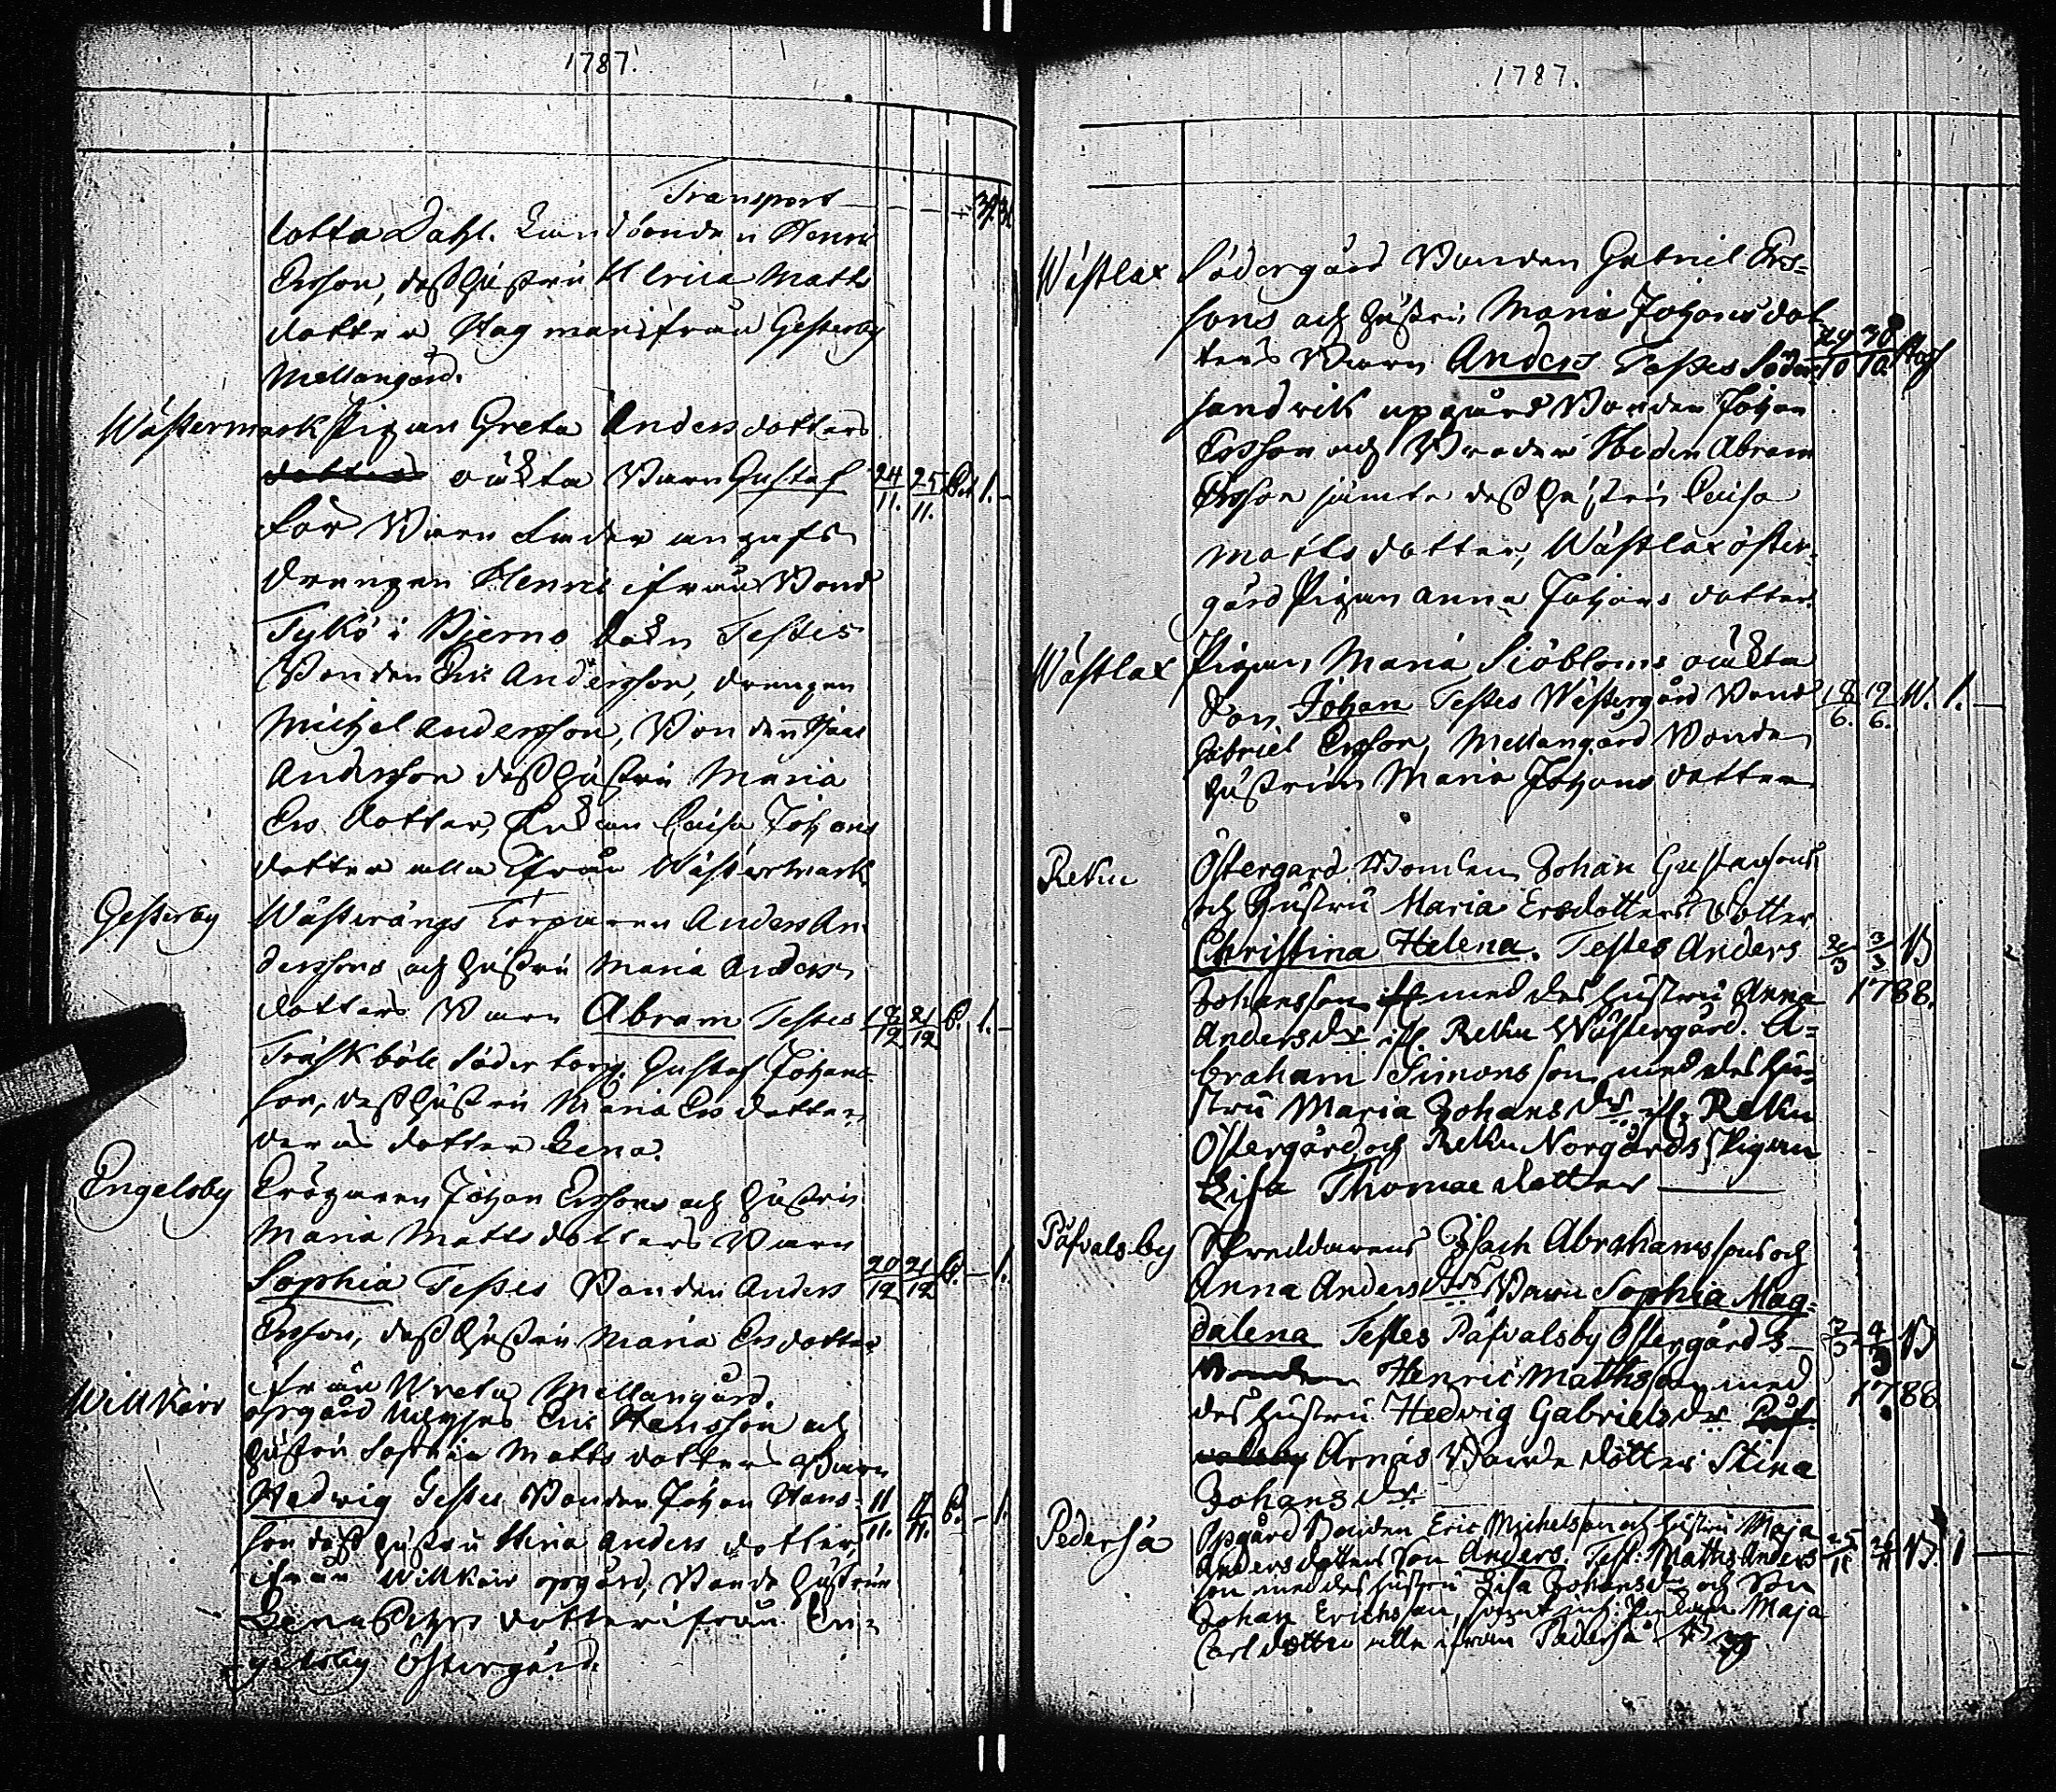 1787.
Transport — — — 39. 36
lotta Dahl. Landbonden Henric
Ersson, dess Hustru Ulrica Matts
dotter Hagman ifrån Gesterby
Mellangård.
Wästermark Pigan Greta Anders dotters
oäkta Barn Gustaf 24/11. 25/11. 1. –
får Barn fader angafs
Drengen Henric ifrån Bonds
Tykö i Bjerno Sokn Testes
Bonden Eric Andersson, Drengen
Michel Andersson, Bonden
Andersson dess Hustru Maria
Ers dotter, Enkan Caisa Johans
dotter alla ifrån Wästermark
Gesterby Wästerängs Torparen Anders An-
derssons och Hustru Maria Anders
dotters Barn Abram Testes 18/12 21/12 B. 1. –
Träskböle Söder torp. Gustaf Johans-
son, dess Hustru Maria Ers dotter,
deras dotter Lena.
Engelsby Torparen Johan Erssons och Hustru
Maria Matts dotters Barn
Sophia Testes Bonden Anders 20/12 21/12 B. – 1.
Ersson, dess Hustru Maria Ers dotter
ifrån Wreta Mellangård.
Willkärr opgård Eric Hansson och
Hustru Sophia Matts dotters Barn
Hedwig Testes Bonden Johan Hans- 11/11. 11/11. B. – 1.
son dess Hustru Stina Anders dotter,
ifrån Willkär opgård, Bonde Hustrun
Lena dotter ifrån En-
gelsby Östergård.
1787.
Wästlax Södergård Bonden Gabriel Ers-
sons och Hustru Maria Johans dot
ters Barn Anders Testes Söder 29/10 30/10
sandwik upgård Bonden Johan
Ersson och Broder Abram
Ersson jämte dess Hustru Caisa
Matts dotter, Wästlax öster-
gård Pigan Anna Johans dotter.
Wästlax Pigan Maria Siöbloms oäkta
Son Johan Testes Wästergård Bond 18/6. 19/6. W. 1. –
Gabriel Ersson, Mellangård Bonde
Hustrun Maria Johans dotter
Rekn Östergård Bonden Johan Gustafsons
och Hustru Maria Ersdotters Dotter
Christina Helena. Testes Anders 2/3 3/3 B
Johansson med des Hustru Anna 1788.
Anders dr ifr. Rekn Wästergård. A-
braham Simonsson med des Hu-
stru Maria Johans dr ifr. Rekn
Östergård, och Rekn Norgårds Pigan
Lisa Thomae dotter —
Påfvalsby Skreddarens Isach Abrahamssons och
Anna Anders drs Barn Sophia Mag-
dalena Testes Påfvalsby Östergårds 3/3 4/3 B
Bonden Henric Mathsson med 1788
des Hustru Hedvig Gabriels dr
Arnäs Bonde dotter Stina
Johans dr.
Pederså Opgård Bonden Eric Michelsson och Hustru Maja
Anders dotters Son Anders. Test: Mats Anders 25/11 26/11 B. 1 –
son med des Hustru Lisa Johans dr och Son
Johan Erichsson, samt Maja
Carl dotter alla ifrån Pederså